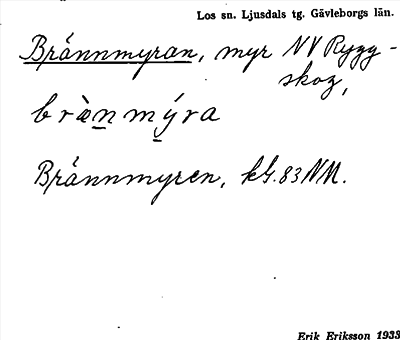 Los sn. Ljusdals tg. Gävleborgs län.
Brännmyran, myr NV Rygg-
skog,
bràen mýra
Brännmyren, kG. 83 NM.
Erik Eriksson 1933